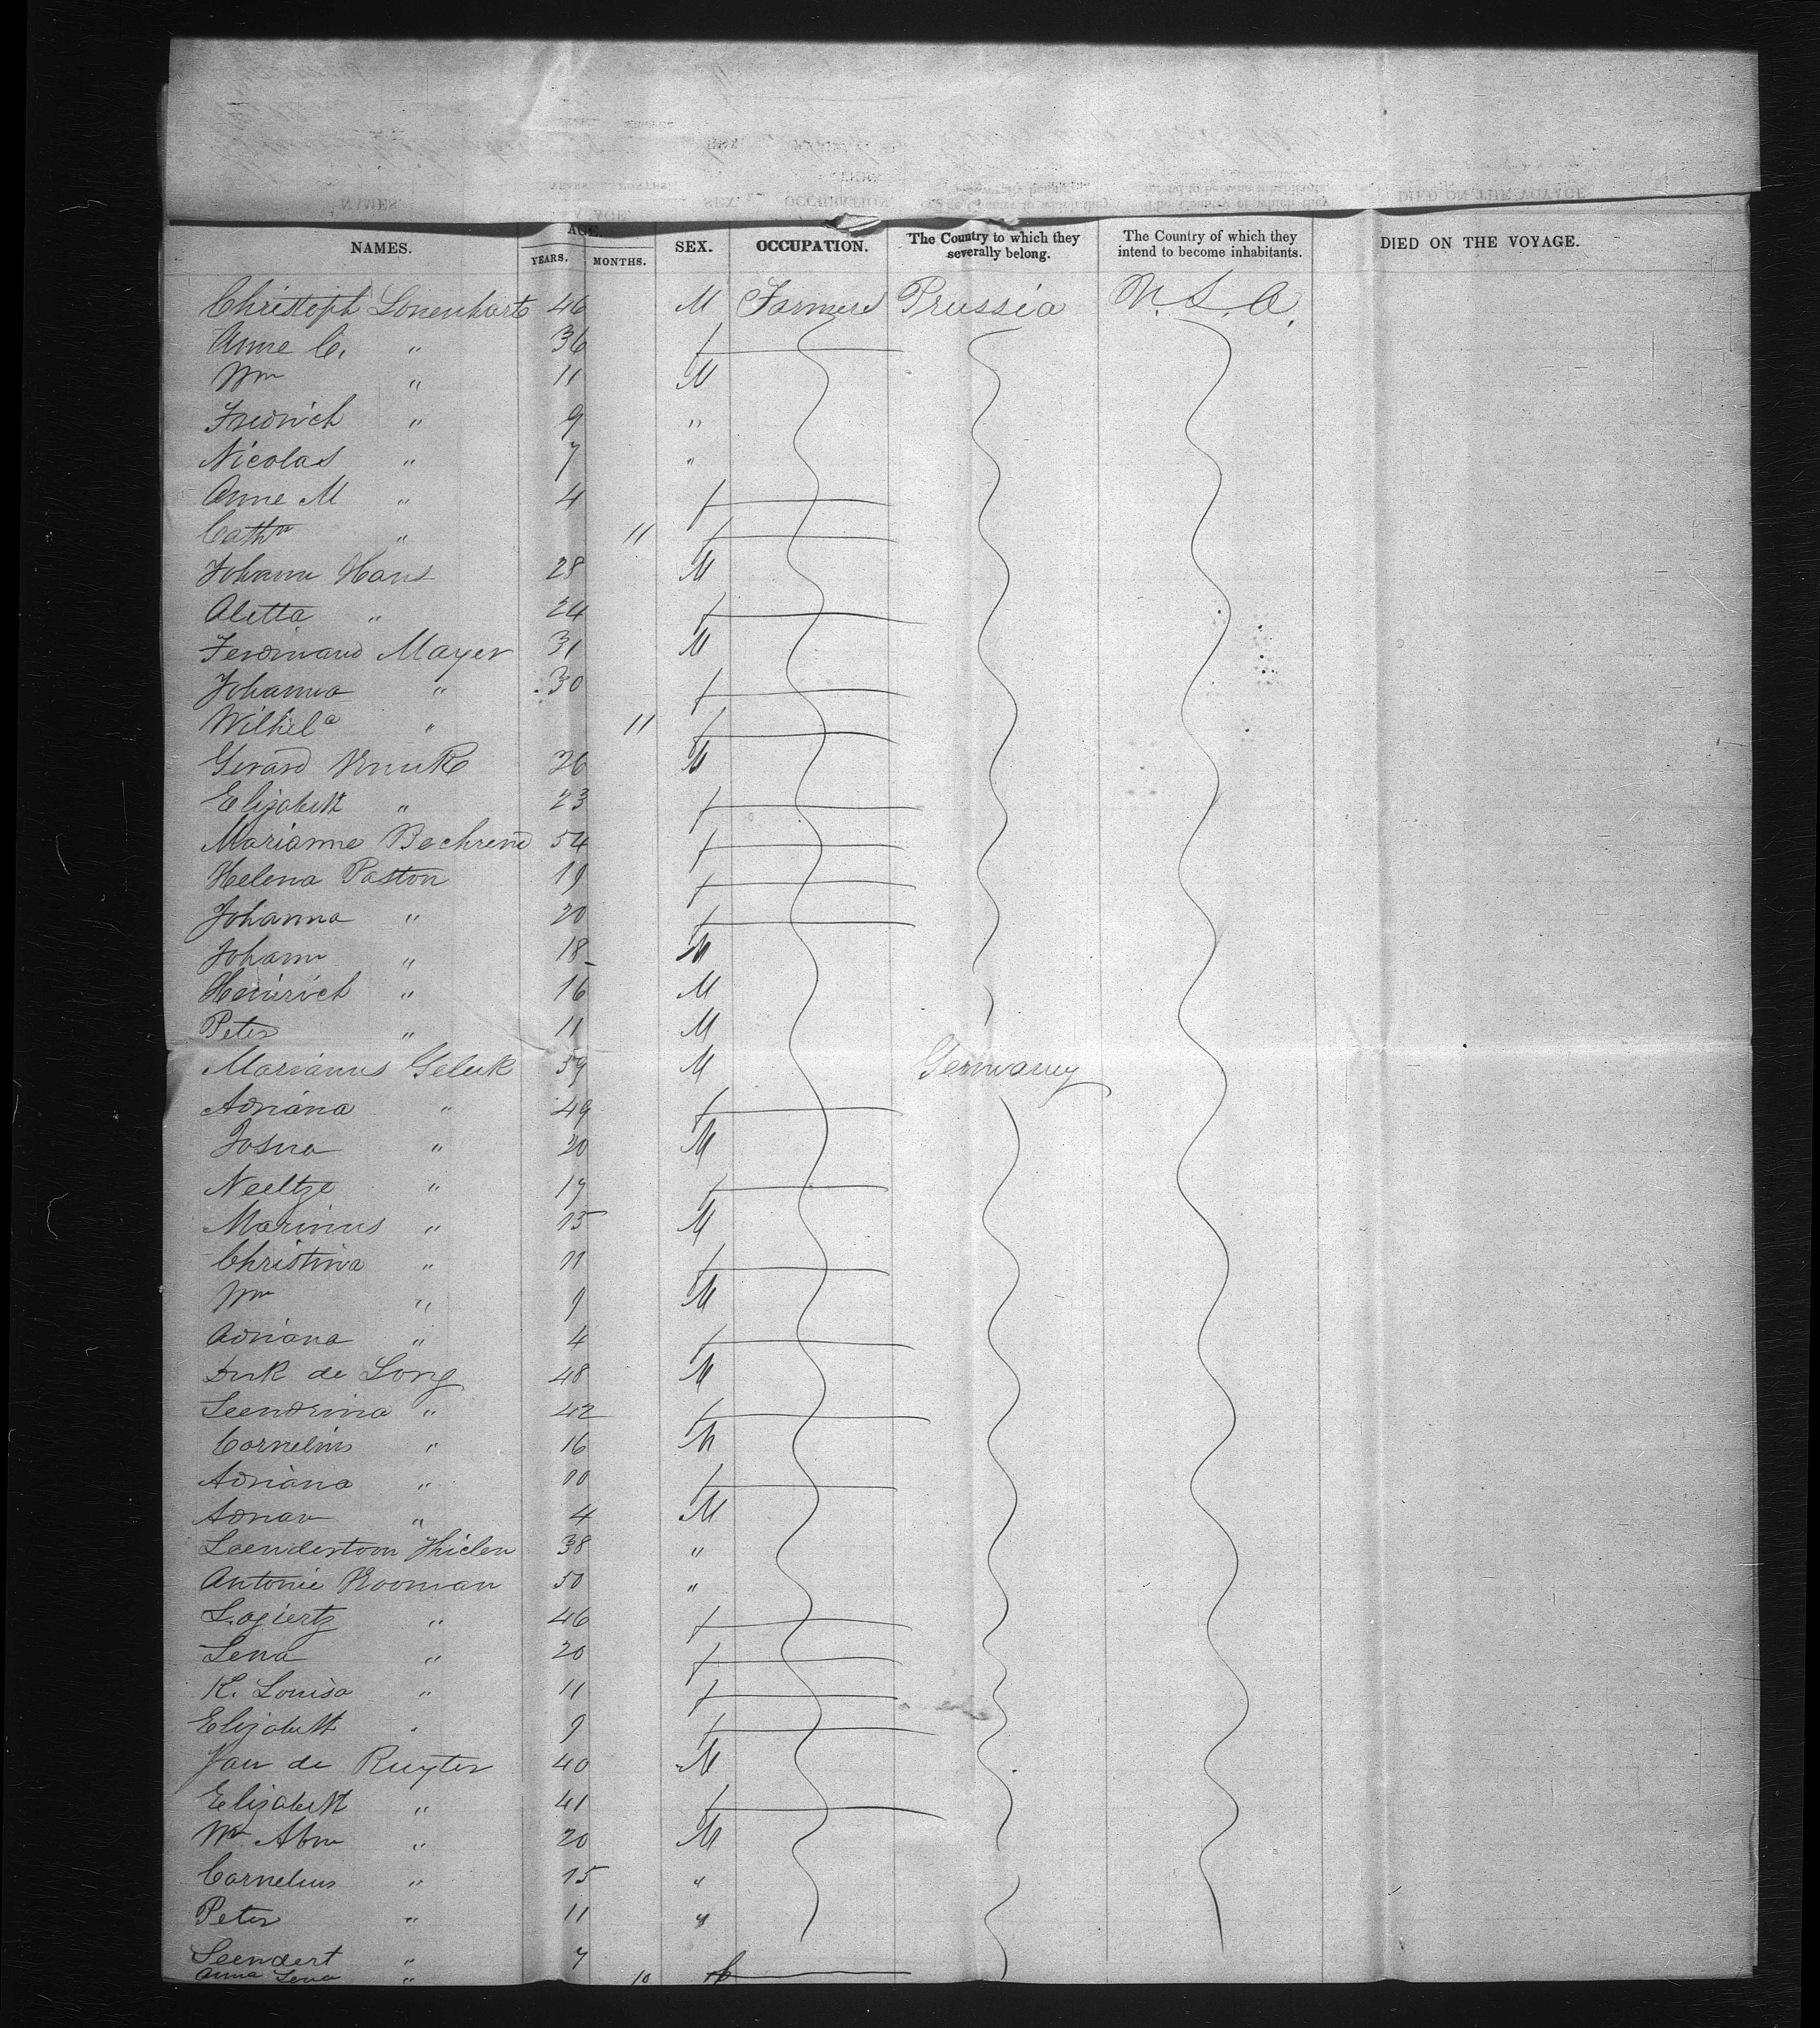 NAMES. AGE. YEARS. MONTHS. SEX. OCCUPATION. The Country to which they severally belong. The Country of which they intend to become inhabitants. DIED ON THE VOYAGE.
Christoph Lonenhart 46 M Farmers Prussia U. S. A.
Anne C. " 36 f
Wm " 11 M
Fredrich " 9 "
Nicolas " 7 "
Anne M " 4 f
Cathn " 11 f
Johann Hans 28 M
Aletta " 24 f
Ferdinand Mayer 31 M
Johanna " 30 f
Wilhela " 11 f
Gerard 26 M
Elizabeth " 23 f
Marianne Bechrend 54 f
Helena Paston 19 f
Johanna " 20 f
Johann " 18 M
Heinrich " 16 M
Peter " 11 M
Marianus Geluk 59 M Germany
Adriana " 49 f
Josua " 20 M
Neeltze " 17 f
Marinus " 15 M
Christina " 11 f
Wm " 9 M
Adriana " 4 f
Dirk de Long 48 M
Leendrina " 42 f
Cornelius " 16 M
Adriana " 10 f
Adrian " 4 M
Leendertoom Thielen 38 "
Antonie Kooman 50 "
L. ogiertz " 46 f
Lena " 20 f
K. Louisa " 11 f
Elizabeth " 9 f
Jan de Ruyter 40 M
Elizabeth " 41 f
Wm Abm " 20 M
Cornelius " 15 "
Peter " 11 "
Leendert " 7
Anna Lena " 10 f